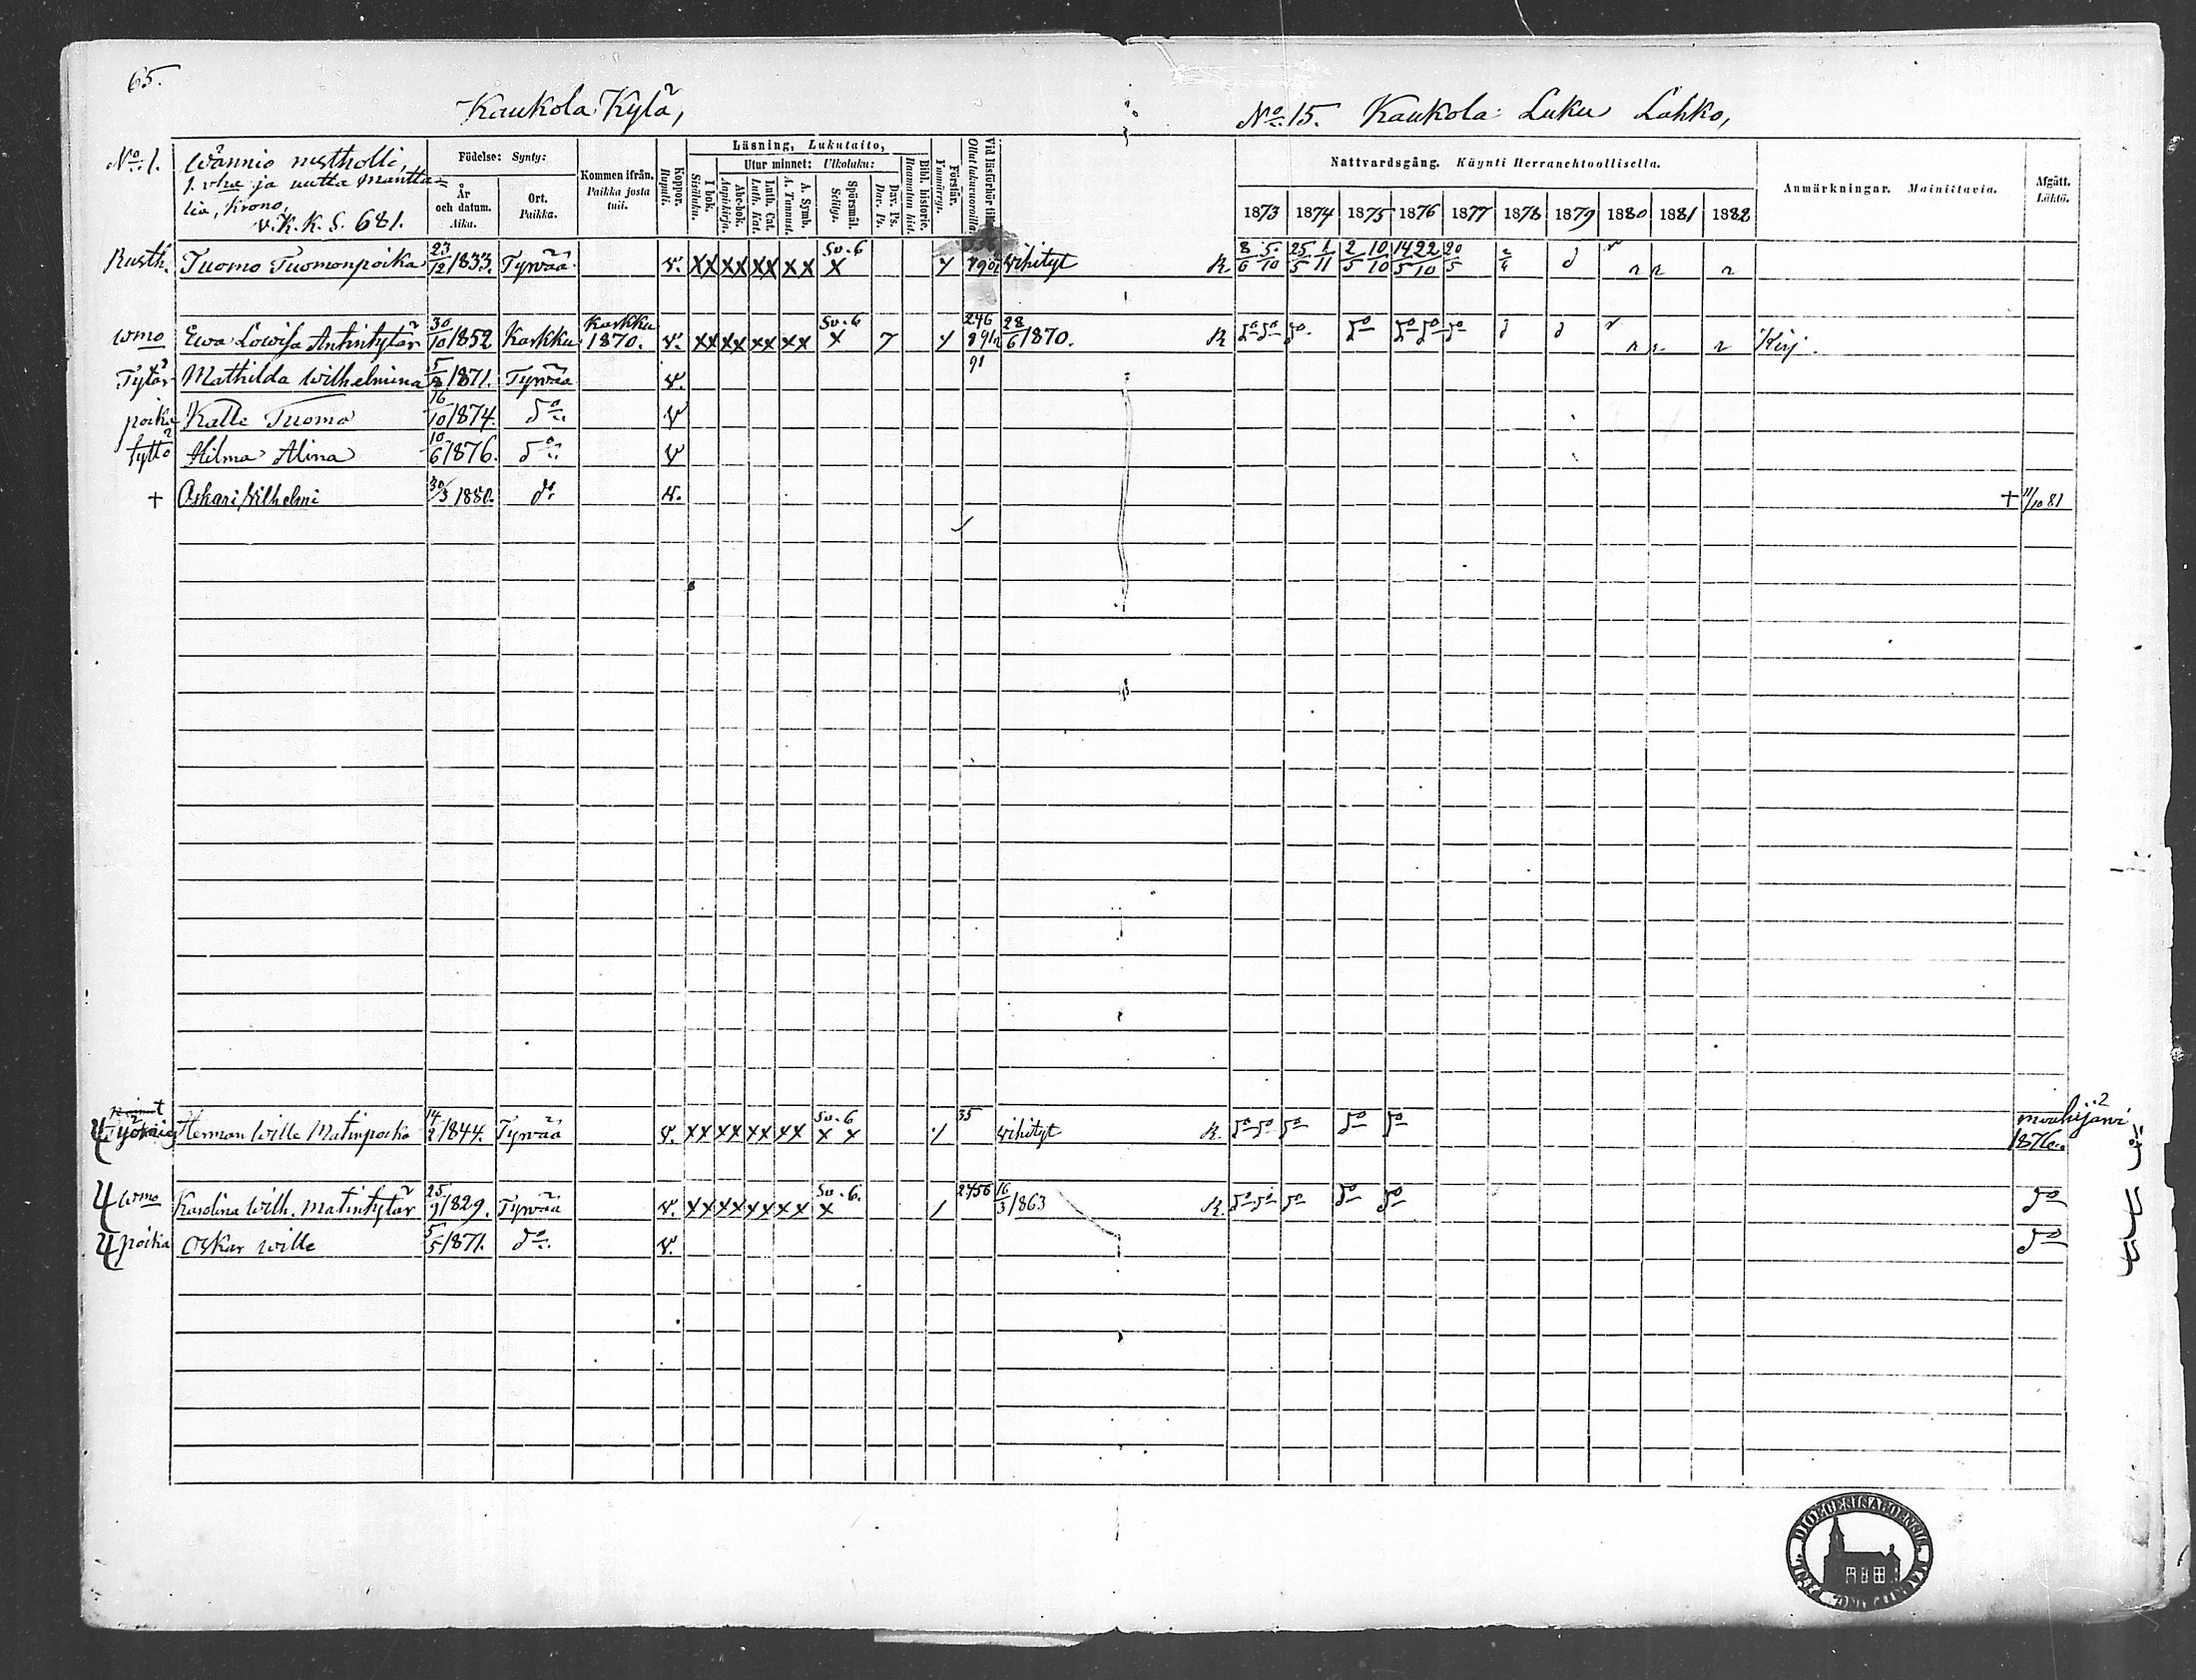 65.
Kaukola Kylä,
No 15. Kaukola Luku Lahko,
No 1. Wännio rustholli,
1. vka ja uutta mantta=
lia, Krono,
v. K. K. S. 681.
Födelse: Synty:
År och datum. Aika.
Ort. Paikka.
Kommen ifrån. Paikka josta tuli.
Koppor. Rupuli.
Läsning, Lukutaito,
I bok. Sisäluku.
Utur minnet: Ulkoluku:
Abc-bok. Aapiskirja.
Luth. Cat. Luth. Kat.
A. Symb. A. Tunnust.
Spörsmål. Selitys.
Dav. Ps. Dav. Ps.
Bibl. historie. Raamatun hist.
Förstår. Ymmärrys.
Vid läsförhör till Ollut lukuvuoroilla
Nattvardsgång. Käynti Herranehtoollisella.
1873 1874 1875 1876 1877 1878 1879 1880 1881 1882
Anmärkningar. Mainiitavia.
Afgått. Lähtö.
Rusth. Tuomo Tuomonpoika 23/12 1833. Tyrvää v. XX XX XX XX Sv. 6 X vihityt R. 8/6 5/10 25/5 1/11 2/5 10/10 14/5 22/10 20/5
wmo Ewa Lowisa Antintytär 30/10 1852 Karkku Karkku 1870. v. XX XX XX XX Sv. 6 X 7 246 28/6 1870. R do do do do do do do Kirj.
91
Tytär Mathilda Wilhelmina 5/8 1871. Tyrvää v.
poika Kalle Tuomo 16/10 1874. do v
tyttö Hilma Alina 10/6 1876. do v
+ Oskari Wilhelmi 30/3 1880. do v. + 11/10 81
Herman Wille Matinpoika 14/2 1844. Tyrvää v. XX XX XX XX Sv. 6 X X 35 vihityt R. do do do do do Mouhijärvi
1876.
wmo Karolina Wilh. Matintytär 25/9 1829. Tyrvää v. XX XX XX XX Sv. 6. X 2456 16/3 1863 R. do do do do do do
poika Oskar Wille 5/5 1871. do v. do